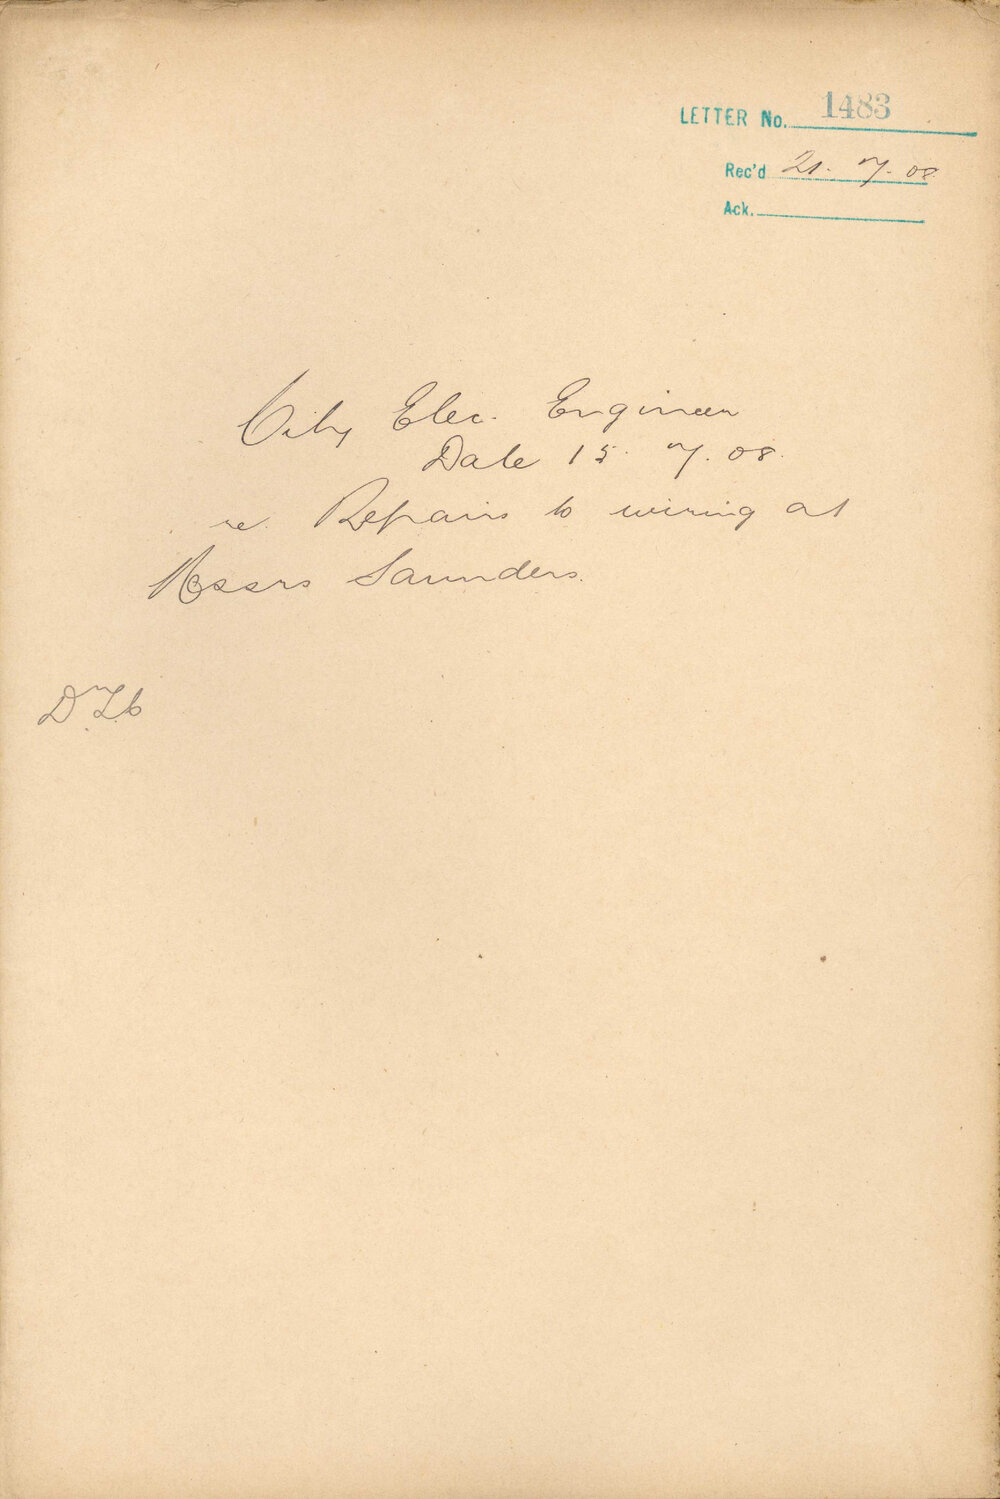 LETTER No. 1483
Rec'd 21. 7. 08.
Ack.
City Elec. Engineer
Date 15. 7. 08.
re. Repairs to wiring at
Messrs Saunders.